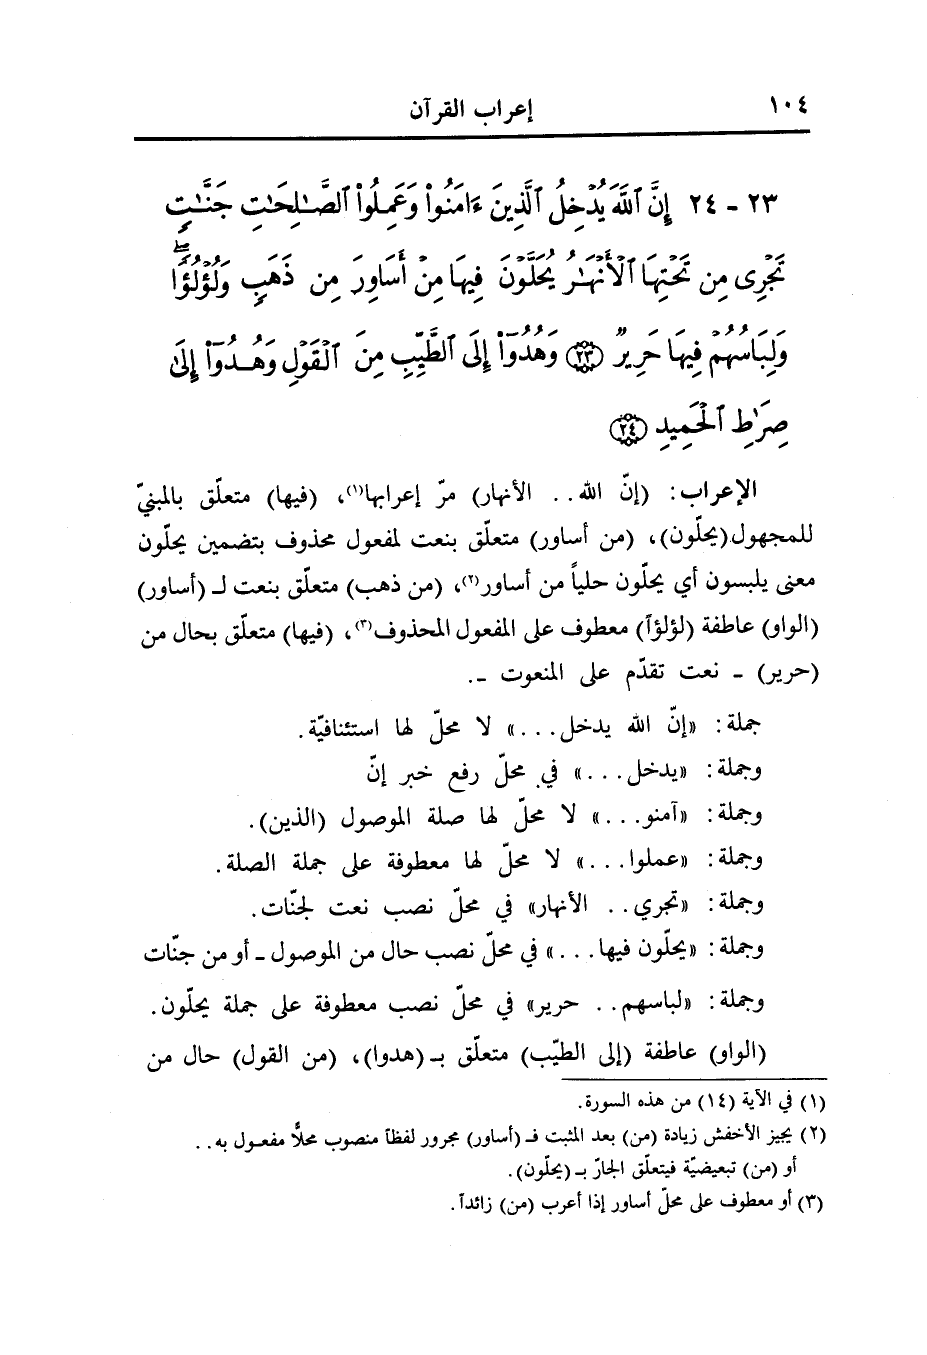 ١٠٤ إعراب القرآن
٢٣ - ٢٤ إِنَّ ٱللَّهَ يُدۡخِلُ ٱلَّذِينَ ءَامَنُوا۟ وَعَمِلُوا۟ ٱلصَّـٰلِحَـٰتِ جَنَّـٰتٍ
تَجۡرِى مِن تَحۡتِهَا ٱلۡأَنۡهَـٰرُ يُحَلَّوۡنَ فِيهَا مِنۡ أَسَاوِرَ مِن ذَهَبٍ وَلُؤۡلُؤًاۖ
وَلِبَاسُهُمۡ فِيهَا حَرِيرٌ ﴿٢٣﴾ وَهُدُوٓا۟ إِلَى ٱلطَّيِّبِ مِنَ ٱلۡقَوۡلِ وَهُدُوٓا۟ إِلَىٰ
صِرَٰطِ ٱلۡحَمِيدِ ﴿٢٤﴾
الإعراب: (إنّ الله.. الأنهار) مرّ إعرابها(١)، (فيها) متعلّق بالمبنيّ
للمجهول(يحلّون)، (من أساور) متعلّق بنعت لمفعول محذوف بتضمين يحلّون
معنى يلبسون أي يحلّون حلياً من أساور(٢)، (من ذهب) متعلّق بنعت لـ (أساور)
(الواو) عاطفة (لؤلؤاً) معطوف على المفعول المحذوف(٣)، (فيها) متعلّق بحال من
(حرير) - نعت تقدّم على المنعوت -.
جملة: «إنّ الله يدخل...» لا محلّ لها استئنافيّة.
وجملة: «يدخل...» في محلّ رفع خبر إنّ
وجملة: «آمنو...» لا محلّ لها صلة الموصول (الذين).
وجملة: «عملوا...» لا محلّ لها معطوفة على جملة الصلة.
وجملة: «تجري.. الأنهار» في محلّ نصب نعت لجنّات.
وجملة: «يحلّون فيها...» في محلّ نصب حال من الموصول - أو من جنّات
وجملة: «لباسهم.. حرير» في محلّ نصب معطوفة على جملة يحلّون.
(الواو) عاطفة (إلى الطيّب) متعلّق بـ (هدوا)، (من القول) حال من
(١) في الآية (١٤) من هذه السورة.
(٢) يجيز الأخفش زيادة (من) بعد المثبت فـ (أساور) مجرور لفظاً منصوب محلاًّ مفعول به..
أو (من) تبعيضيّة فيتعلّق الجارّ بـ (يحلّون).
(٣) أو معطوف على محلّ أساور إذا أعرب (من) زائداً.